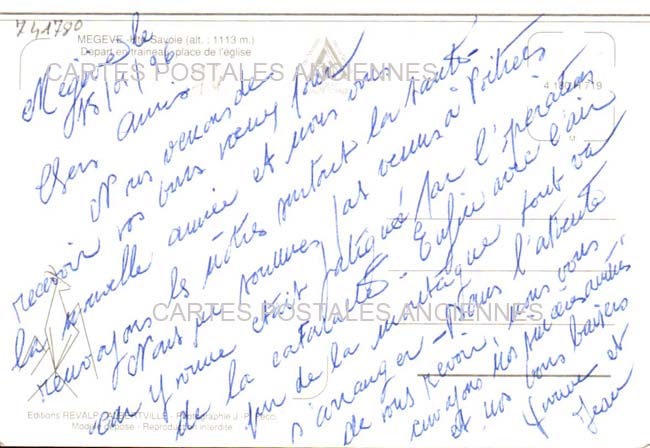 741780
MEGEVE - Hte Savoie (alt. : 1113 m.)
Départ en traineau, place de l'église
CARTES POSTALES ANCIENNES
Megève le
15/01/96
Chers amis
Nous venons de
recevoir vos bons vœux pour
la nouvelle année et nous vous
renvoyons les nôtres surtout la santé -
Nous ne sommes pas venus à Poitiers
car Yvonne était fatiguée par l'opération
de la cataracte - Enfin avec l'air
pur de la montagne tout va
s'arranger - Dans l'attente
de vous revoir, nous vous
envoyons nos amitiés
et nos bons baisers
Yvonne et
Jean
CARTES POSTALES ANCIENNES
Editions REVALP - ALBERTVILLE - Photographie J.-P.
Modèle déposé - Reproduction interdite